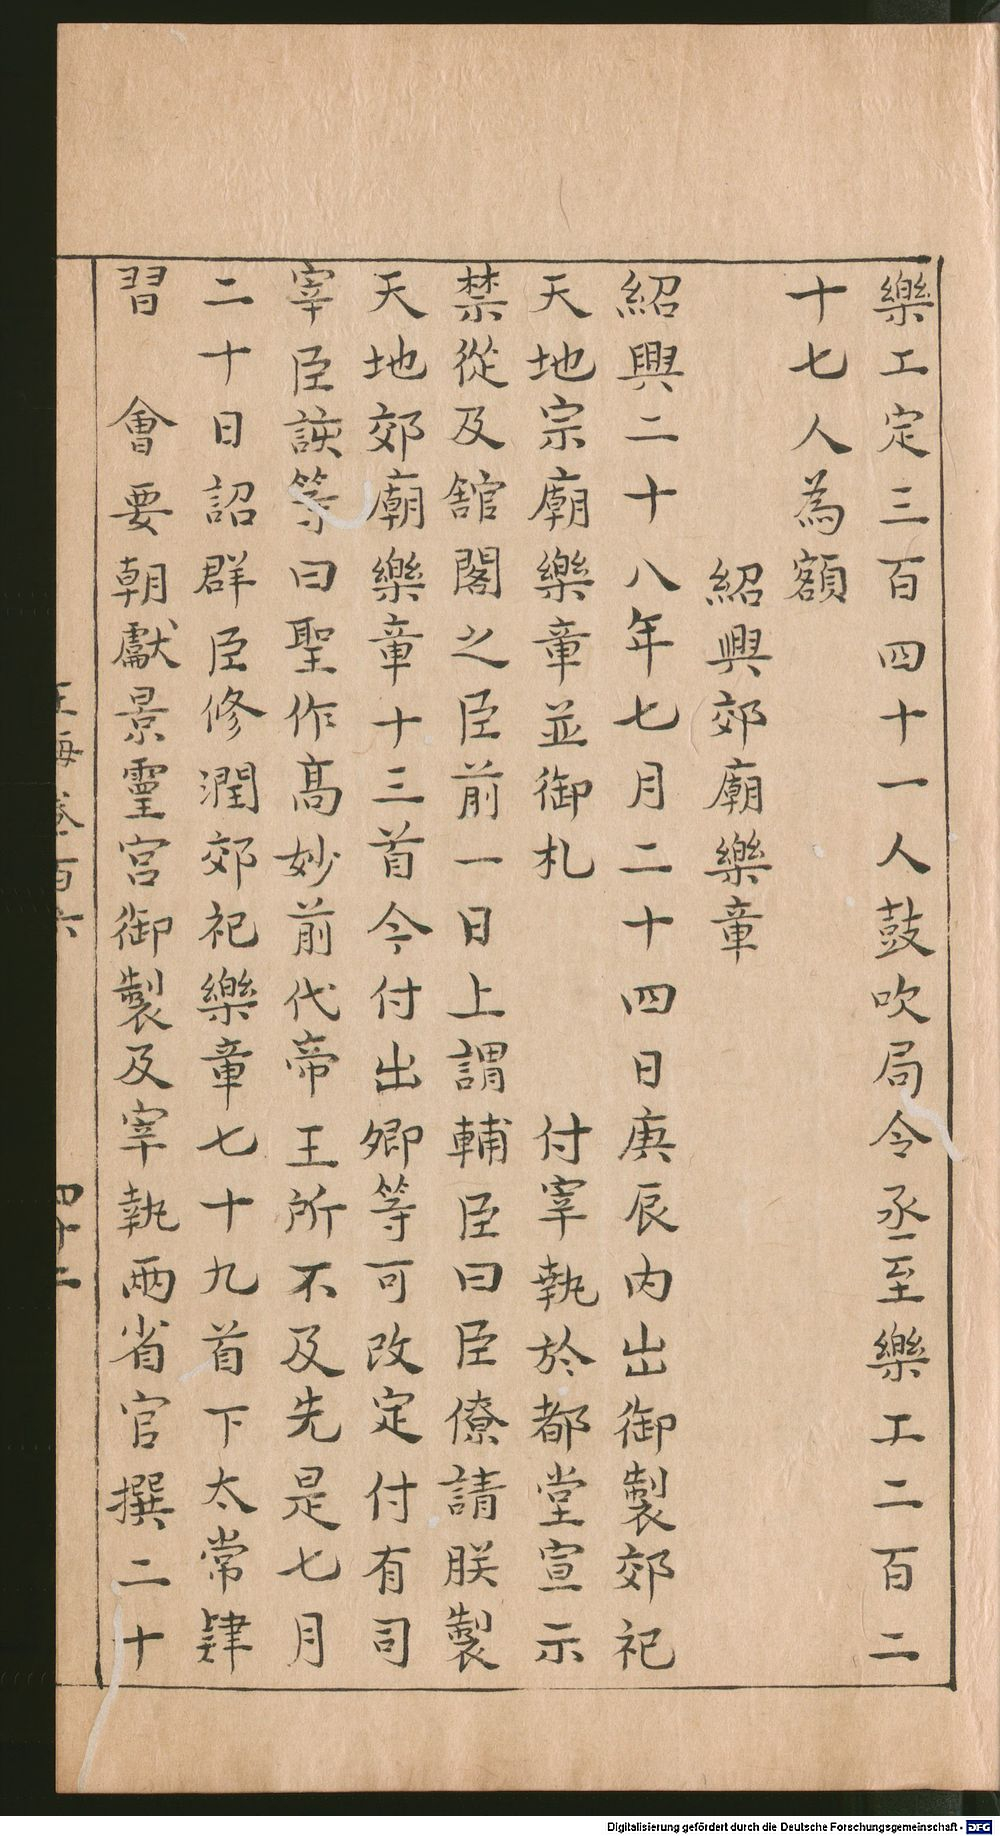 樂工定三百四十一人鼓吹局令丞至樂工二百二
十七人為額
紹興郊廟樂章
紹興二十八年七月二十四日庚辰内出御製郊祀
天地宗廟樂章並御札 付宰執於都堂宣示
禁從及舘閣之臣前一日上謂輔臣曰臣僚請朕製
天地郊廟樂章十三首今付出卿等可改定付有司
宰臣該等曰聖作高妙前代帝王所不及先是七月
二十日詔群臣修潤郊祀樂章七十九首下太常肄
習 會要朝獻景靈宮御製及宰執兩省官撰二十
玉海卷百六 四十二
Digitalisierung gefördert durch die Deutsche Forschungsgemeinschaft - DFG